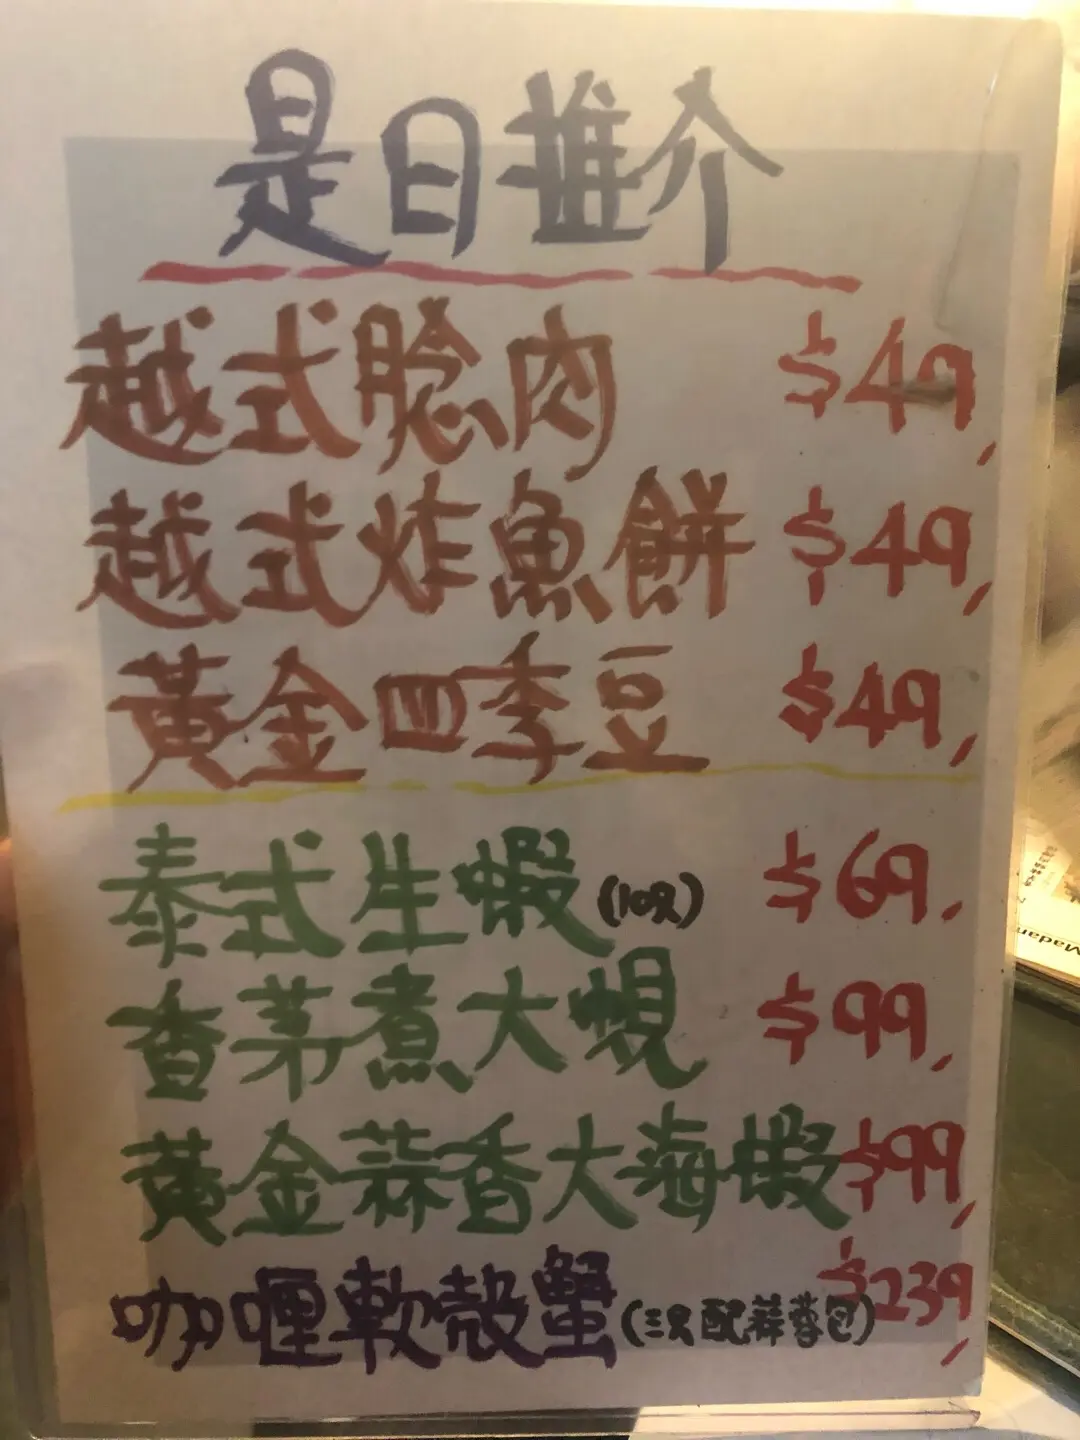 是日推介
越式腍肉 $49
越式炸魚餅 $49
黃金四季豆 $49
泰式生蝦(10只) $69
香茅煮大蜆 $99
黃金蒜香大海蝦 $99
咖喱軟殼蟹(三只配蒜蓉包) $239
Madam